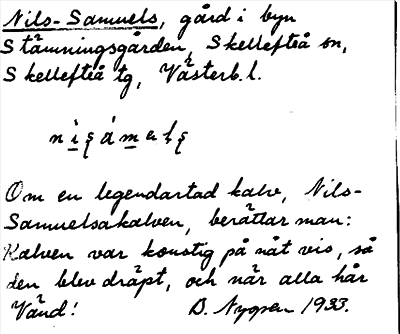 Nils-Samuels, gård i byn
Stämningsgården, Skellefteå sn,
Skellefteå tg, Västerb. l.
Om en legendartad kalv, Nils-
Samuelsakalven, berättar man:
Kalven var konstig på nåt vis, så
den blev dräpt, och när alla hår
Vänd! D. Nygren 1933.